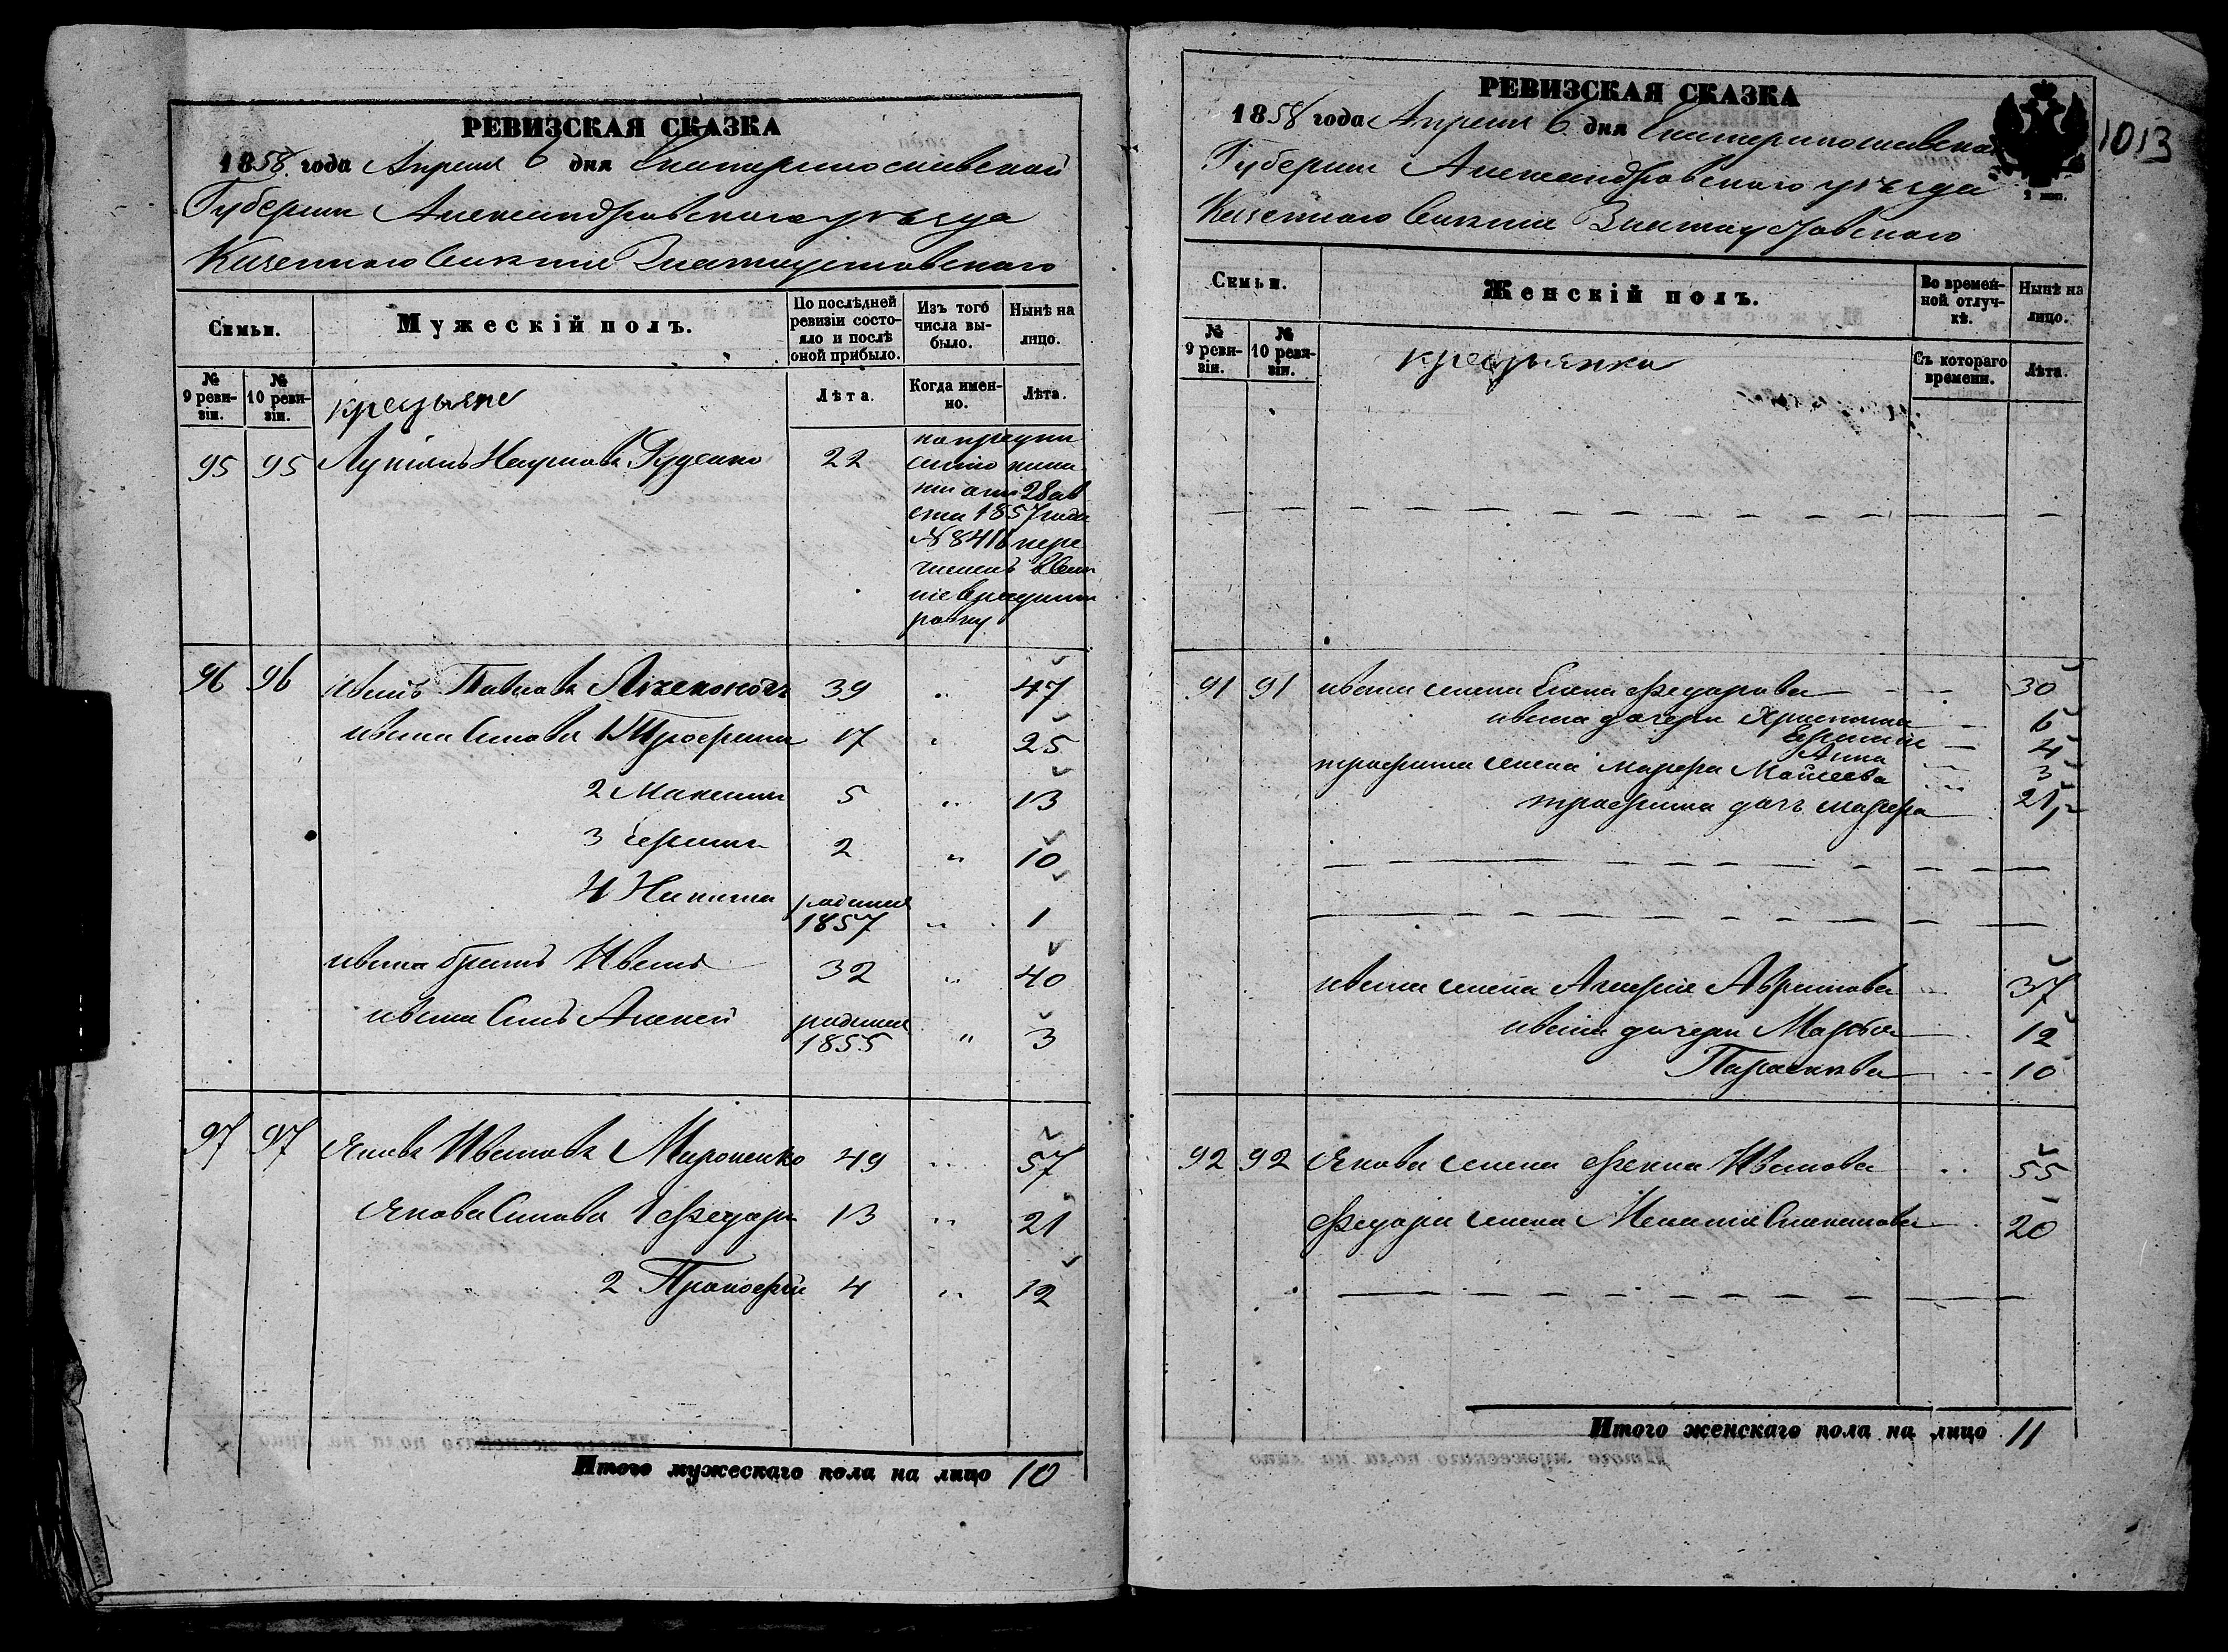 РЕВИЗСКАЯ СКАЗКА
1858 года Апреля 6 дня Екатеринославской
Губернии Александровского уезда
Казенного Селения Златоустовского
Семьи.
Мужескій полъ.
По послѣдней ревизіи состояло и послѣ оной прибыло.
Изъ того числа выбыло.
Нынѣ на лицо.
№ 9 ревизіи.
№ 10 ревизіи.
крестьяне
Лѣта.
Когда именно.
Лѣта.
95 95 Лукіянъ Наумовъ Руденко 22
по предпи
санію пала
ты отъ 28 ав
ста 1857 года
№ 8416 пере
численъ в селе
ніе
96 96 Иванъ Павловъ 39 " 47
Ивана Сыновья 1 Трофимъ 17 " 25
2 Максимъ 5 " 13
3 2 " 10
4 Никита родился 1857 " 1
Ивана братъ Иванъ 32 " 40
Ивана Сынъ Алексей родился 1855 " 3
97 97 Яковъ Ивановъ Мироненко 49 " 57
Якова Сыновья 1 Федоръ 13 " 21
2 Прокофій 4 " 12
Итого мужескаго пола на лицо 10
РЕВИЗСКАЯ СКАЗКА
1013
1858 года Апреля 6 дня Екатеринославской
Губернии Александровского уезда
Казенного Селения Златоустовского
Семьи.
Женскій полъ.
Во временной отлучкѣ.
Нынѣ на лицо.
№ 9 ревизіи.
№ 10 ревизіи.
крестьянки
Съ котораго времени.
Лѣта.
91 91 Ивана жена Елена Федорова 30
Ивана дочери Христина 6
4
Анна 3
Трофима жена Марфа Моисеева 21
Трофима дочь Марфа
Ивана жена Авримова 37
Ивана дочери Марья 12
Парасковья 10
92 92 Якова жена Фекла Иванова 55
Федора жена Мелания 20
Итого женскаго пола на лицо 11